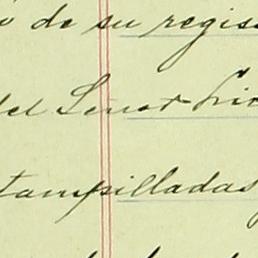 de su regis
del Senor Lic
tampilladas